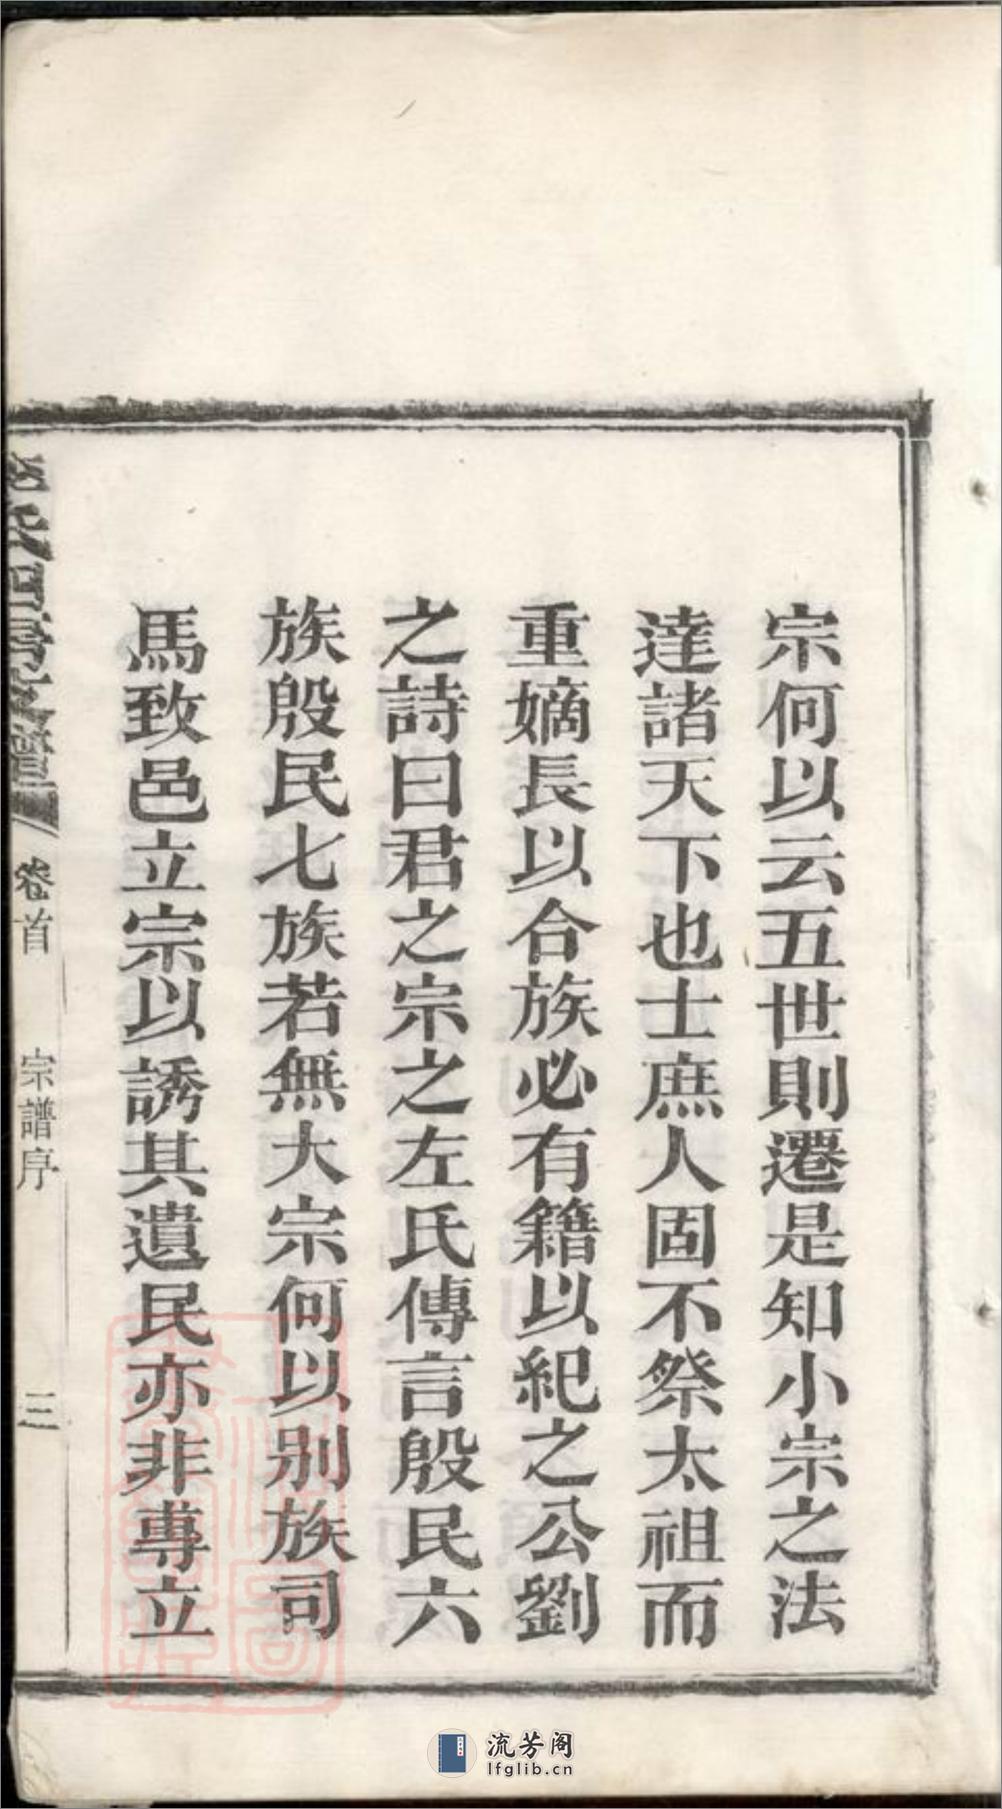 宗何以云五世則遷是知小宗之法
達諸天下也士庶人固不祭太祖而
重嫡長以合族必有籍以紀之公劉
之詩曰君之宗之左氏傳言殷民六
族殷民七族若無大宗何以別族司
馬致邑立宗以誘其遺民亦非專立
卷首
宗譜序
三
流芳阁
lfglib.cn